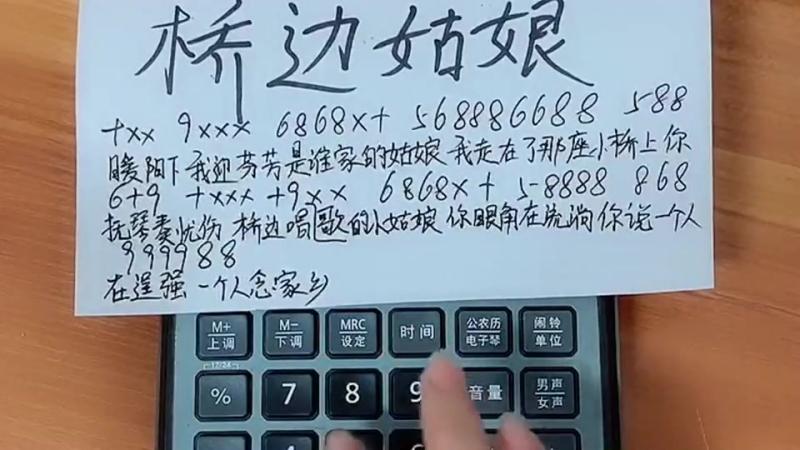 桥边姑娘
+xx 9xxx 6868x+ 568886688 588
暖阳下我迎芬芳是谁家的姑娘 我走在了那座小桥上你
6+9 +xxx +9xx 6868x+ 5-8888 868
抚琴奏忧伤 桥边唱歌的小姑娘 你眼角在流淌 你说一个人
999988
在逞强一个人念家乡
M+ 上调 M− 下调 MRC 设定 时间 公农历 电子琴 闹铃 单位
% 7 8 9 音量 男声 女声